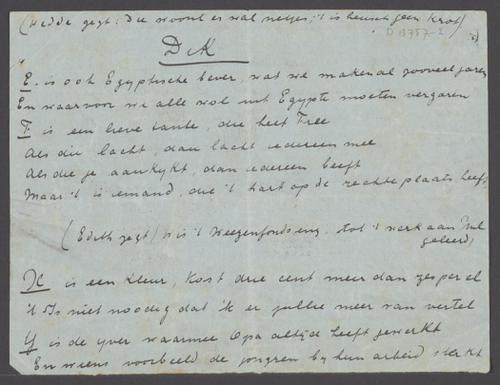 (Hedde zegt: Die woont er wál netjes, 't is heusch geen krot)
D 13757-2
D. K
E. is ook Egyptische bever, wat we maken al zooveel jaren
En waarvoor we alle wol uit Egypte moeten vergaren
F is een lieve tante, die heet Free
Als die lacht, dan lacht iedereen mee
Als die je aankykt, dan iedereen beeft
Maar 't is iemand, die 't hart op de rechte plaats heeft
(Edith zegt) is 't Weezenfonds eng. tot 't werk aan
geleerd)
is een kleur, kost drie cent meer dan zes per el
't Is niet noodig dat 'k er jullie meer van vertel
Y is de yver waarmee Opa altijd heeft gewerkt
En wiens voorbeeld de jongren by hun arbeid sterkt